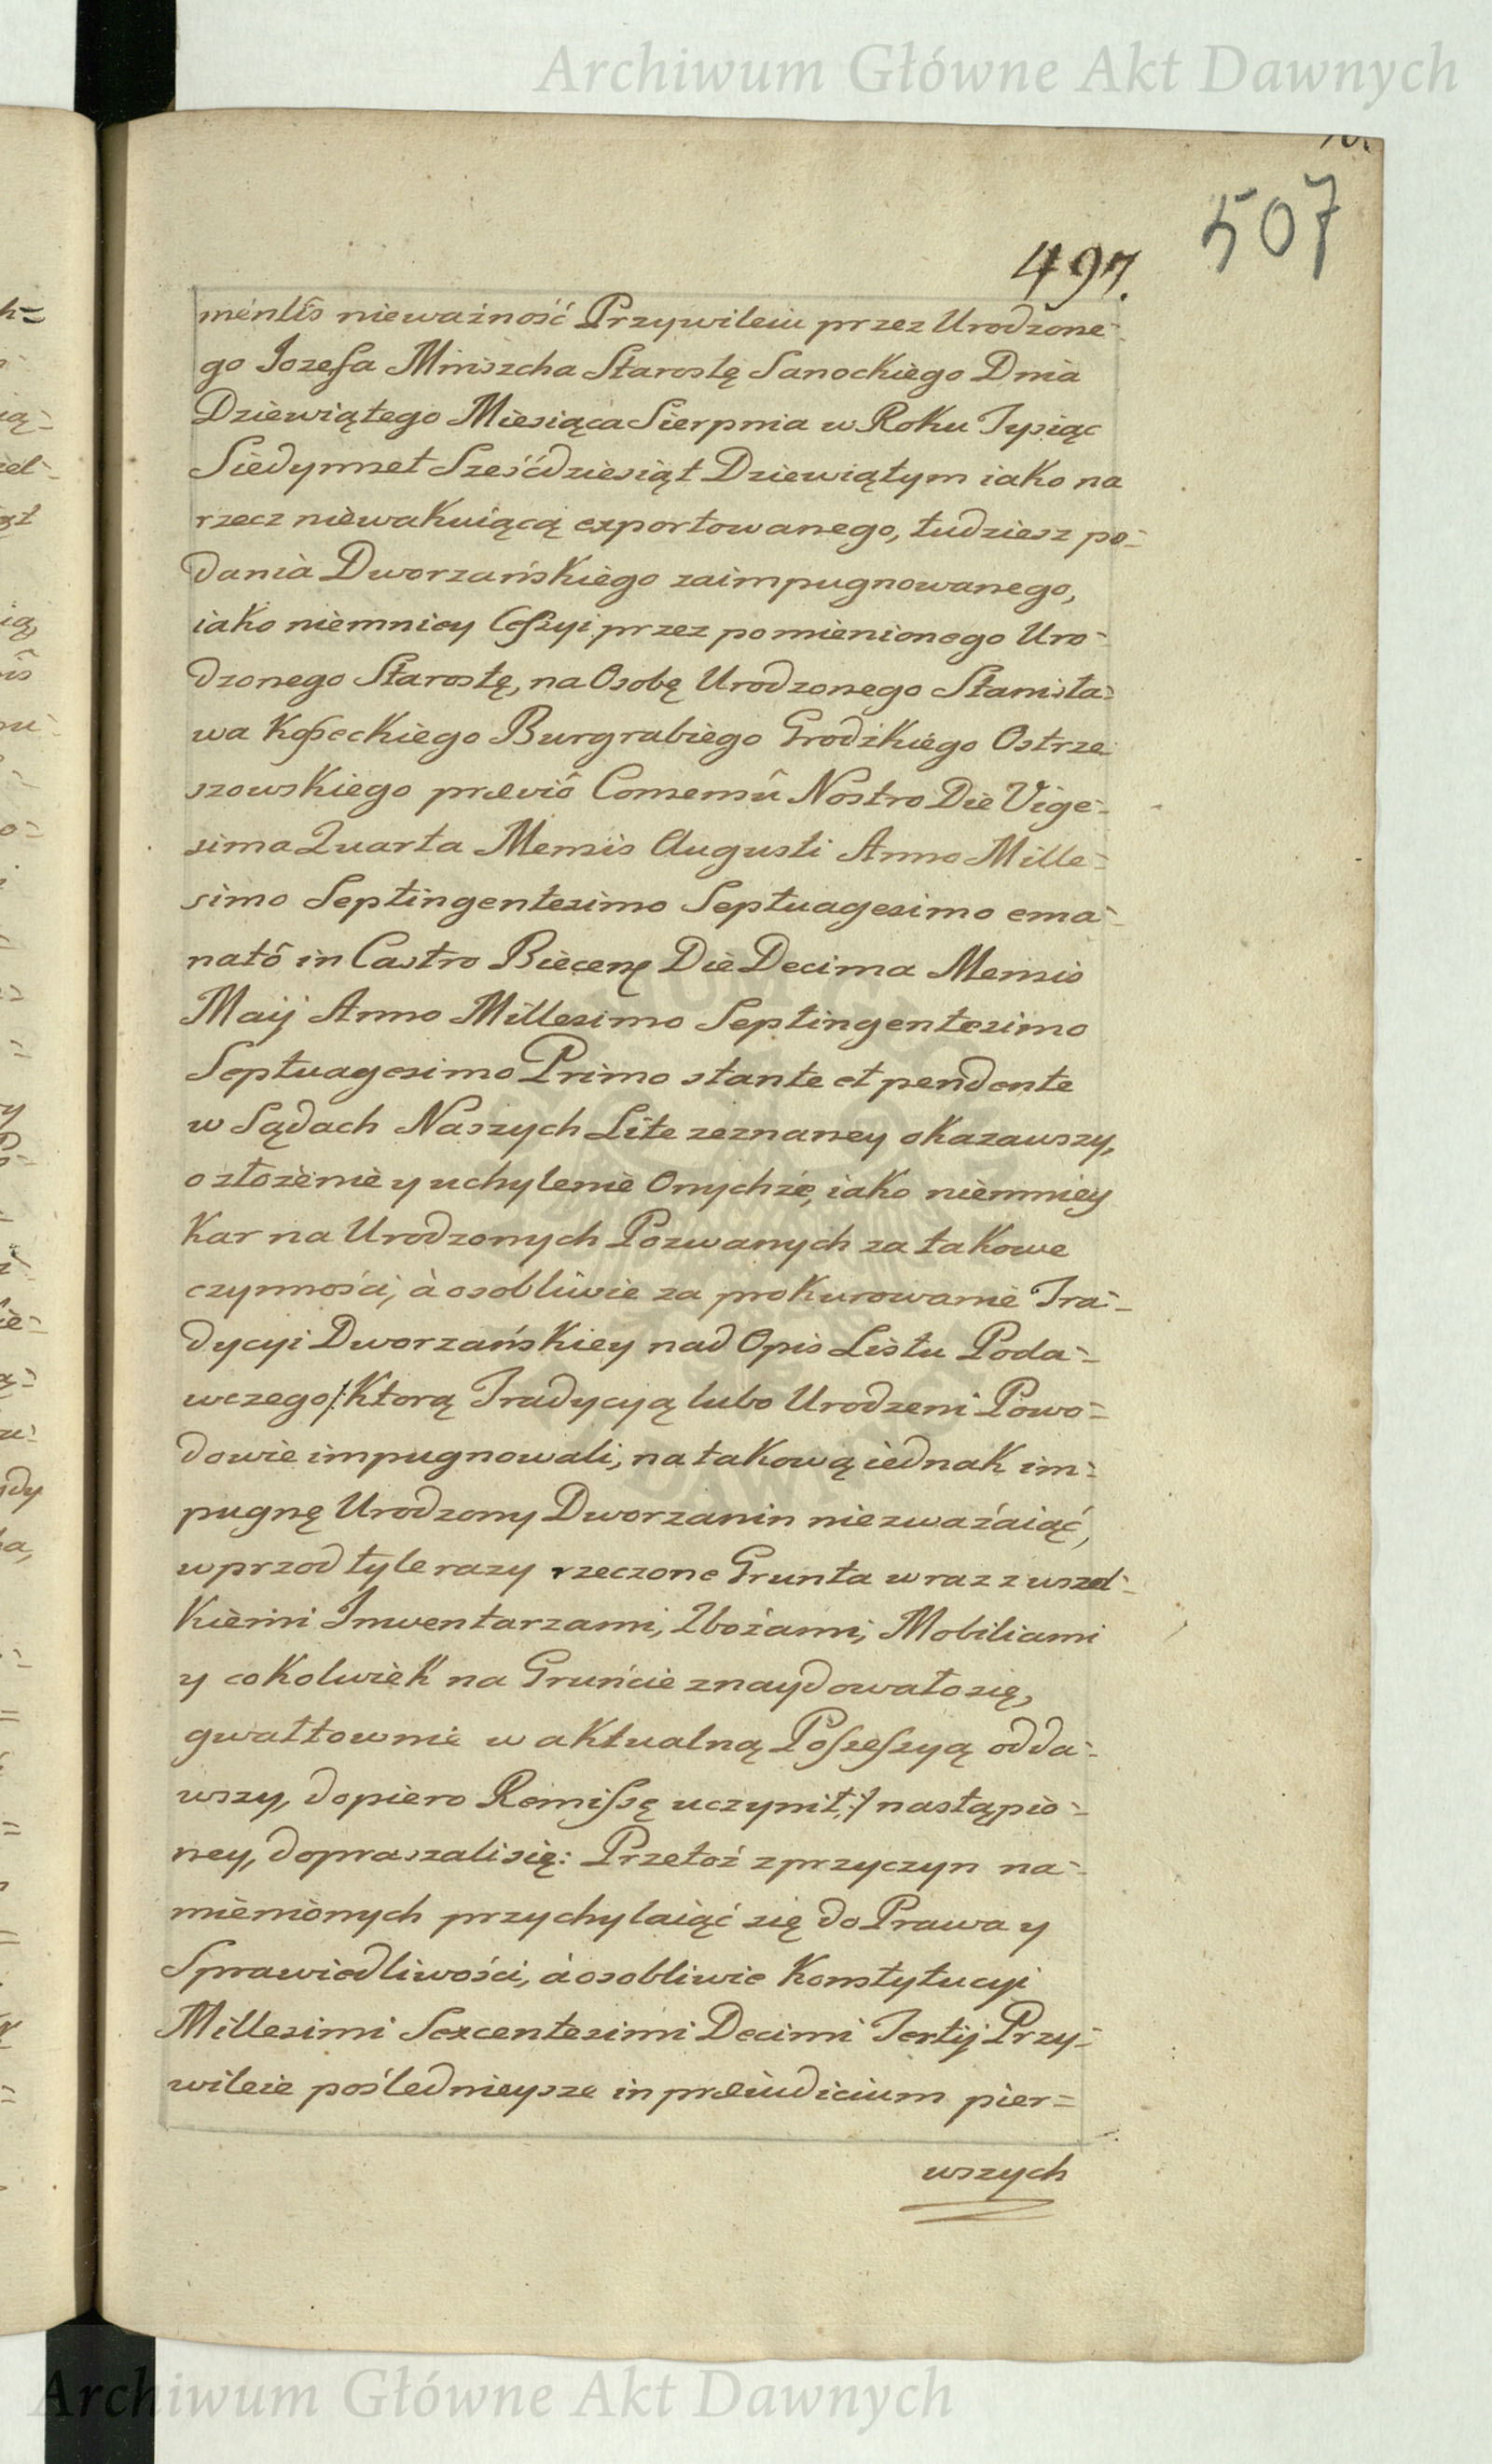 Archiwum Główne Akt Dawnych
507
497.
mentîs nieważność Przywileiu przez Urodzone-
go Jozefa Mniszcha Starostę Sanockiego Dnia
Dziewiątego Miesiąca Sierpnia w Roku Tysiąc
Siedymset Sześćdziesiąt Dziewiątym iako na
rzecz niewakuiącą exportowanego, tudziesz po-
dania Dworzańskiego zaimpugnowanego,
iako niemniey Cessyi przez pomienionego Uro-
dzonego Starostę, na Osobę Urodzonego Stanisła-
wa Burgrabiego Grodzkiego Ostrze
szowskiego præviô Consensû Nostro Die Vige-
sima Quarta Mensis Augusti Anno Mille-
simo Septingentesimo Septuagesimo ema-
natô in Castro Biecensę Die Decima Mensis
Maij Anno Millesimo Septingentesimo
Septuagesimo Primo stante et pendente
w Sądach Naszych Lite zeznaney okazawszy,
o złożenie y uchylenie Onychże, iako niemniey
Kar na Urodzonych Pozwanych za takowe
czynności, à osobliwie za prokurowanie Tra-
dycyi Dworzańskiey nad Opis Listu Poda-
wczego /: Ktorą Tradycyą lubo Urodzeni Powo-
dowie impugnowali, na takową iednak im-
pugnę Urodzony Dworzanin niezważaiąć,
wprzod tyle razy rzeczone Grunta wraz z wszel-
kiemi Inwentarzami, Zbożami, Mobiliami
y cokolwiek na Gruńcie znaydowało się,
gwałtownie w aktualną Possessyą odda-
wszy, dopiero Remissę uczynił :/ nastąpio-
ney, dopraszali się: Przetoż z przyczyn na-
mienionych przychylaiąć się do Prawa y
Sprawiedliwości, à osobliwie Konstytucyi
Millesimi Sexcentesimi Decimi Tertij Przy-
wileie poślednieysze in præiudicium pier=
wszych
Archiwum Główne Akt Dawnych